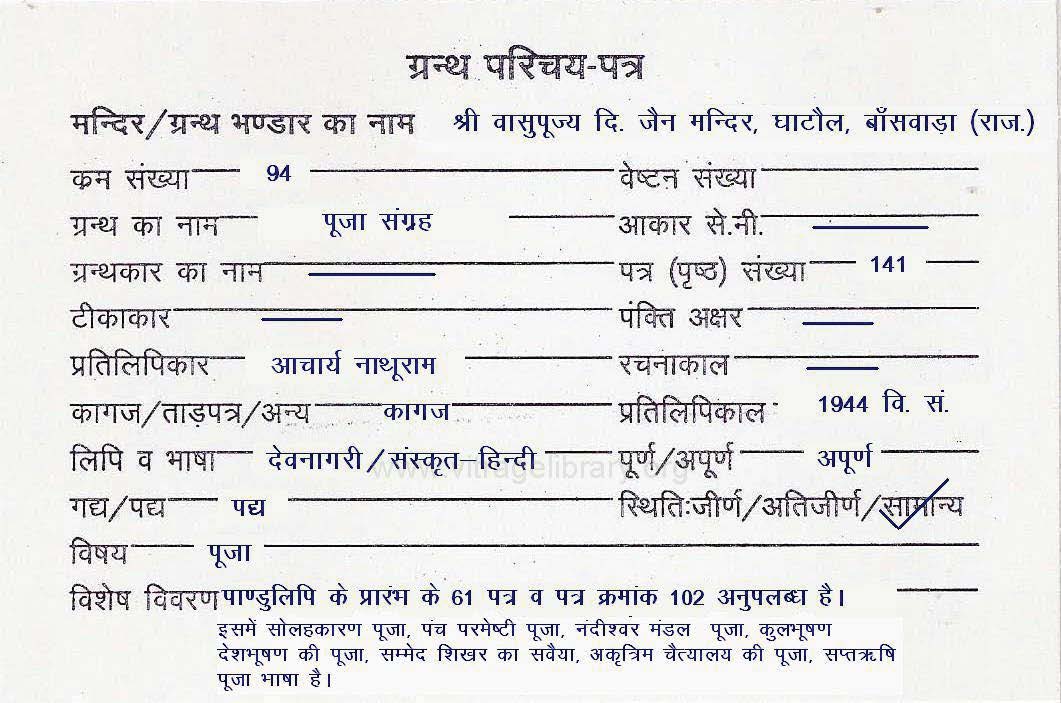 ग्रन्थ परिचय-पत्र
मन्दिर/ग्रन्थ भण्डार का नाम श्री वासुपूज्य दि. जैन मन्दिर, घाटौल, बाँसवाड़ा (राज.)
कम संख्या 94 वेष्टन संख्या
ग्रन्थ का नाम पूजा संग्रह आकार से.मी.
ग्रन्थकार का नाम पत्र (पृष्ठ) संख्या 141
टीकाकार पंक्ति अक्षर
प्रतिलिपिकार आचार्य नाथूराम रचनाकाल
कागज/ताड़पत्र/अन्य कागज प्रतिलिपिकाल 1944 वि. सं.
लिपि व भाषा देवनागरी/संस्कृत-हिन्दी पूर्ण/अपूर्ण अपूर्ण
www.vitragelibrary.org
गद्य/पद्य पद्य स्थितिःजीर्ण/अतिजीर्ण/सामान्य
विषय पूजा
विशेष विवरण पाण्डुलिपि के प्रारंभ के 61 पत्र व पत्र क्रमांक 102 अनुपलब्ध है।
इसमें सोलहकारण पूजा, पंच परमेष्टी पूजा, नंदीश्वर मंडल पूजा, कुलभूषण
देशभूषण की पूजा, सम्मेद शिखर का सवैया, अकृत्रिम चैत्यालय की पूजा, सप्तऋषि
पूजा भाषा है।